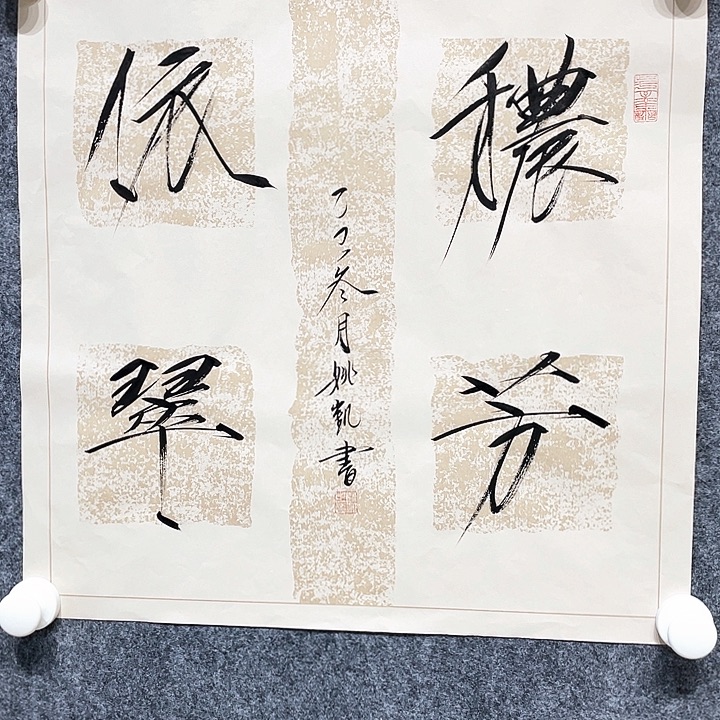 穠芳
依翠
乙巳叁月姚凱書